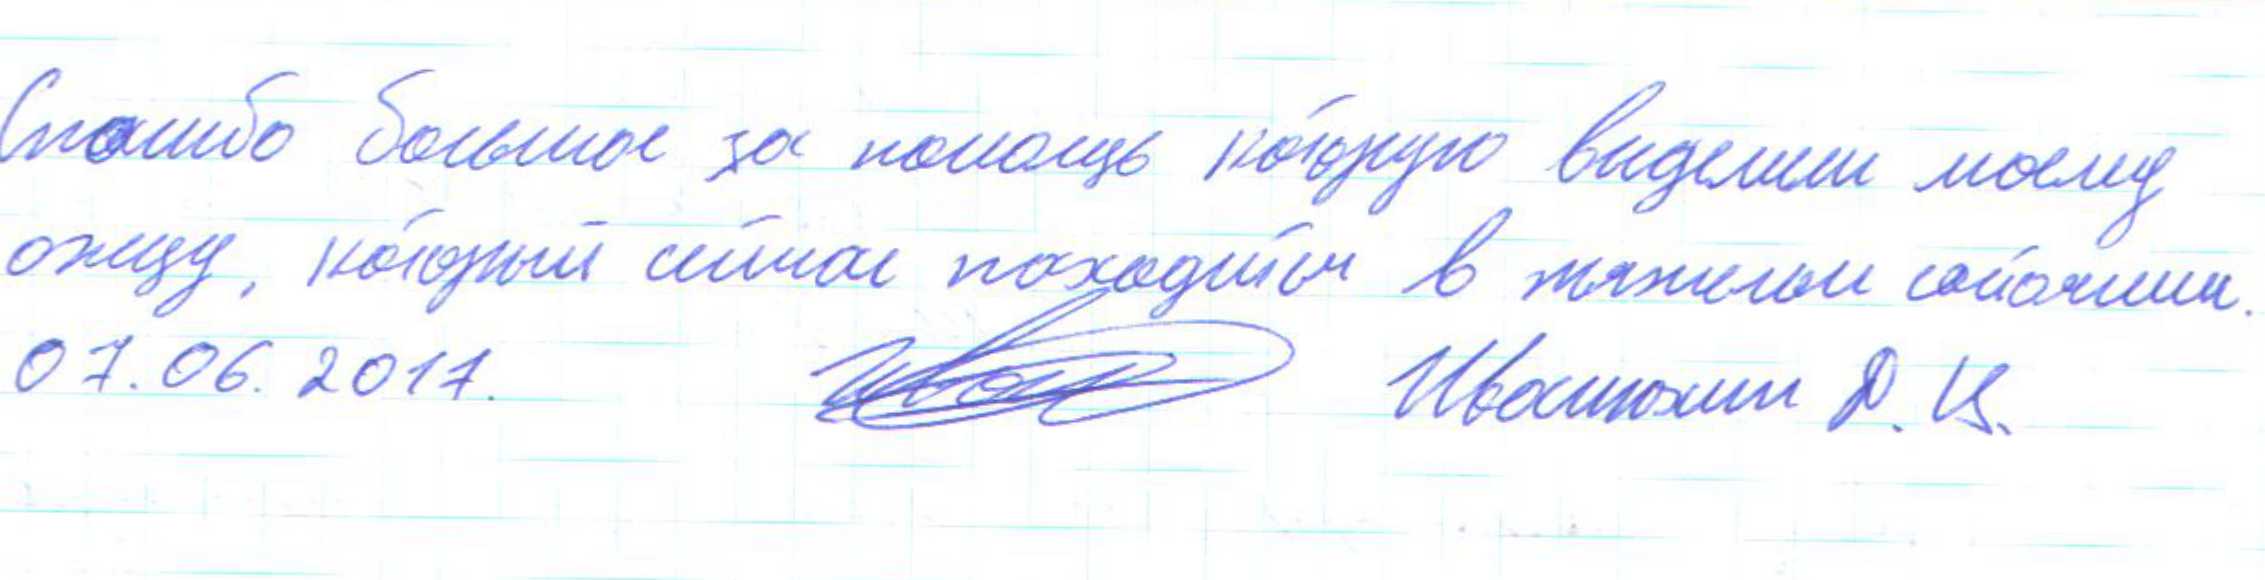 Спасибо большое за помощь которую выделили моему
отцу, который сейчас находиться в тяжелом состоянии.
07.06.2017. Д. И.